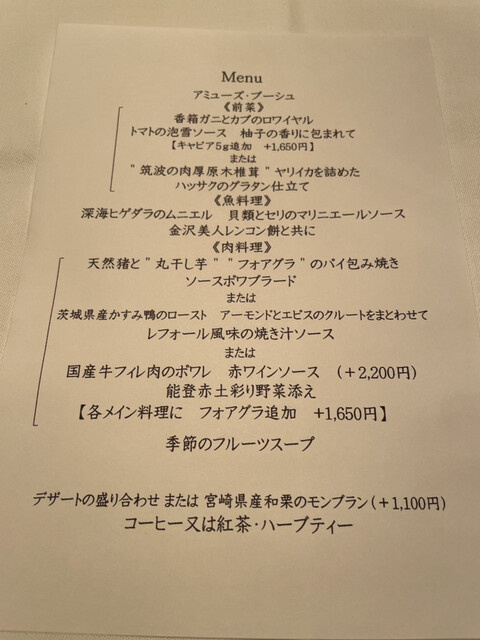 Menu
アミューズ・ブーシュ
《前菜》
香箱ガニとカブのロワイヤル
トマトの泡雪ソース　柚子の香りに包まれて
【キャビア5g追加　+1,650円】
または
"筑波の肉厚原木椎茸"ヤリイカを詰めた
ハッサクのグラタン仕立て
《魚料理》
深海ヒゲダラのムニエル　貝類とセリのマリニエールソース
金沢美人レンコン餅と共に
《肉料理》
天然猪と"丸干し芋"　"フォアグラ"のパイ包み焼き
ソースポワブラード
または
茨城県産かすみ鴨のロースト　アーモンドとエピスのクルートをまとわせて
レフォール風味の焼き汁ソース
または
国産牛フィレ肉のポワレ　赤ワインソース　(+2,200円)
能登赤土彩り野菜添え
【各メイン料理に　フォアグラ追加　+1,650円】
季節のフルーツスープ
デザートの盛り合わせ または 宮崎県産和栗のモンブラン(+1,100円)
コーヒー又は紅茶・ハーブティー